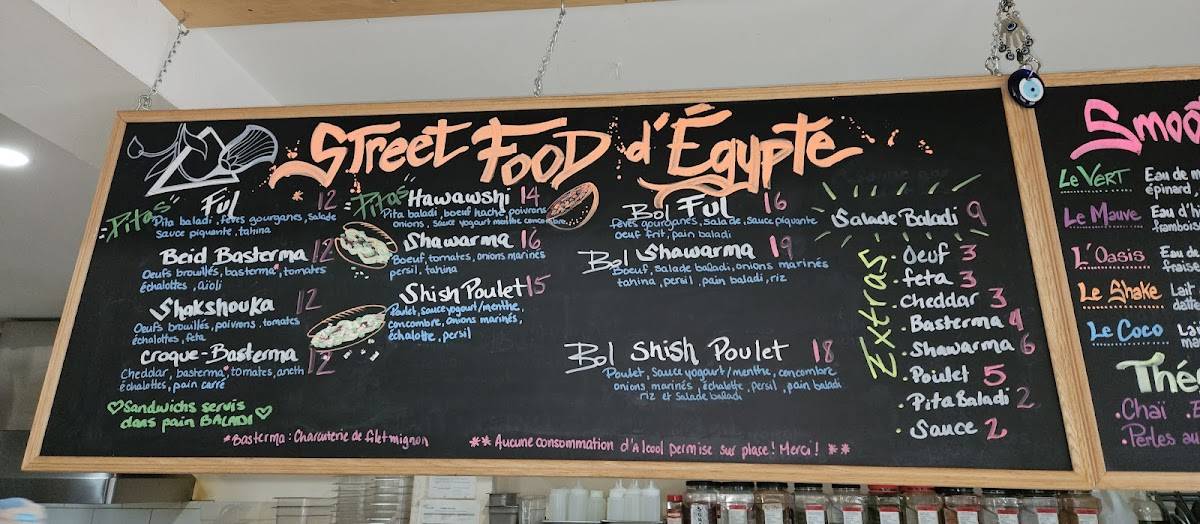 Street Food d'Égypte
Pitas
Ful 12
Pita baladi, fèves gourganes, salade
Sauce piquante, tahina
Beid Basterma 12
Oeufs brouillés, basterma*, tomates
échalottes, aïoli
Shakshouka 12
Oeufs brouillés, poivrons, tomates
échalottes, feta
Croque-Basterma 12
Cheddar, basterma*, tomates, aneth
échalottes, pain carré
Sandwichs servis
dans pain BALADI
*Basterma: Charcuterie de filet mignon
Pitas
Hawawshi 14
Pita baladi, boeuf haché, poivrons
onions, sauce yogourt menthe concombre
Shawarma 16
Boeuf, tomates, onions marinés
persil, tahina
Shish Poulet 15
Poulet, sauce yogourt/menthe,
concombre, onions marinés,
échalotte, persil
Bol Ful 16
fèves gourganes, salade, sauce piquante
oeuf frit, pain baladi
Bol Shawarma 19
Boeuf, salade baladi, onions marinés
tahina, persil, pain baladi, riz
Bol Shish Poulet 18
Poulet, sauce yogourt/menthe, concombre
onions marinés, échalotte, persil, pain baladi
riz et salade baladi
** Aucune consommation d'Alcool permise sur place! Merci! **
Salade Baladi 9
Extras
. Oeuf 3
. feta 3
. Cheddar 3
. Basterma 4
. Shawarma 6
. Poulet 5
. Pita Baladi 2
. Sauce 2
Smoo
Le Vert Eau de m
épinard
Le Mauve Eau d'h
frambois
L'Oasis Eau de
fraise
Le Shake Lait
datte
Le Coco La
ma
Thé
. Chaï
. Perles au